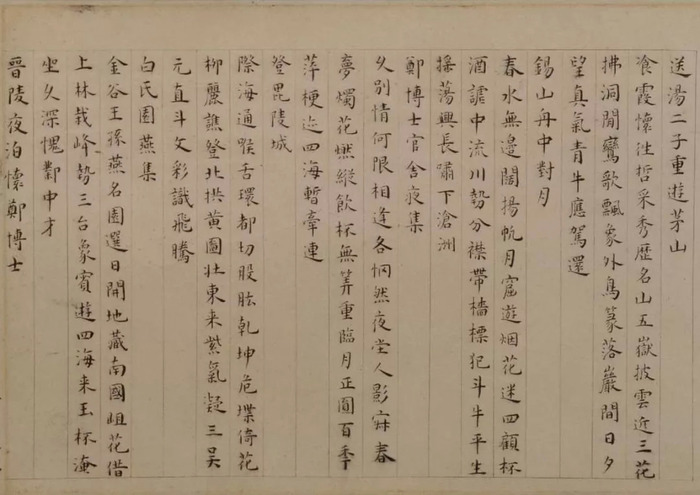 送湯二子重遊茅山
飡霞懷往哲采秀歷名山五嶽披雲近三花
拂洞閒鸞歌飄象外鳥篆落巖間日夕
望真氣青牛應駕還
錫山舟中對月
春水無邊闊揚帆月窟遊烟花迷四顧杯
酒謔中流川勢分襟帶檣標犯斗牛平生
搖蕩興長嘯下滄洲
鄭博士官舍夜集
久別情何限相逢各惘然夜堂人影寂春
夢燭花燃縱飲杯無筭重臨月正圓百年
萍梗迹四海暫牽連
登毘陵城
際海通喉舌環都切股肱乾坤危堞倚花
柳麗譙登北拱黄圖壯東来紫氣凝三吴
元直斗文彩識飛騰
白氏園燕集
金谷王孫燕名園選日開地藏南國岨花借
上林栽峰勢三台象賓遊四海来玉杯淹
坐久深愧鄴中才
晉陵夜泊懷鄭博士